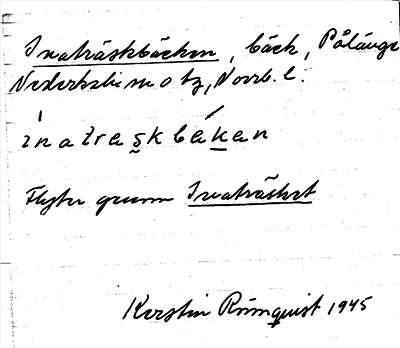 Inaträskbäcken, bäck, Pålänge
Nederkalix sn o tg, Norrb. l.
inatræskbækan
Flyter genom Inaträsket
Kerstin Rönnquist 1945